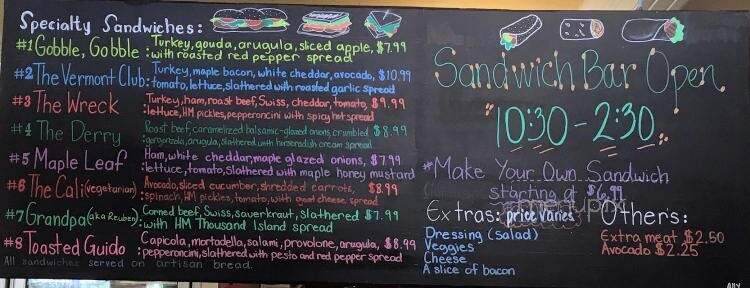 Specialty Sandwiches:
#1 Gobble, Gobble : Turkey, gouda, arugula, sliced apple, $7.99
with roasted red pepper spread
#2 The Vermont Club: Turkey, maple bacon, white cheddar, avocado, $10.99
tomato, lettuce, slathered with roasted garlic spread
#3 The Wreck Turkey, ham, roast beef, Swiss, cheddar, tomato, $9.99
: lettuce, HM pickles, pepperoncini with spicy hot spread
#4 The Derry Roast beef, caramelized balsamic-glazed onions, crumbled $8.99
: gorgonzola, arugula, slathered with horseradish cream spread
#5 Maple Leaf Ham, white cheddar, maple glazed onions, $7.99
: lettuce, tomato, slathered with maple honey mustard
#6 The Cali (vegetarian) Avocado, sliced cucumber, shredded carrots, $8.99
: spinach, HM pickles, tomato, with goat cheese spread
#7 Grandpa (aka Reuben) Corned beef, Swiss, sauerkraut, slathered $7.99
: with HM Thousand Island spread
#8 Toasted Guido Capicola, mortadella, salami, provolone, arugula, $8.99
: pepperoncini, slathered with pesto and red pepper spread
All sandwiches served on artisan bread.
Sandwich Bar Open
"10:30 - 2:30"
*Make Your Own Sandwich
starting at $6.99
Extras: price varies
Dressing (Salad)
Veggies
Cheese
A slice of bacon
Other's:
Extra meat $2.50
Avocado $2.25